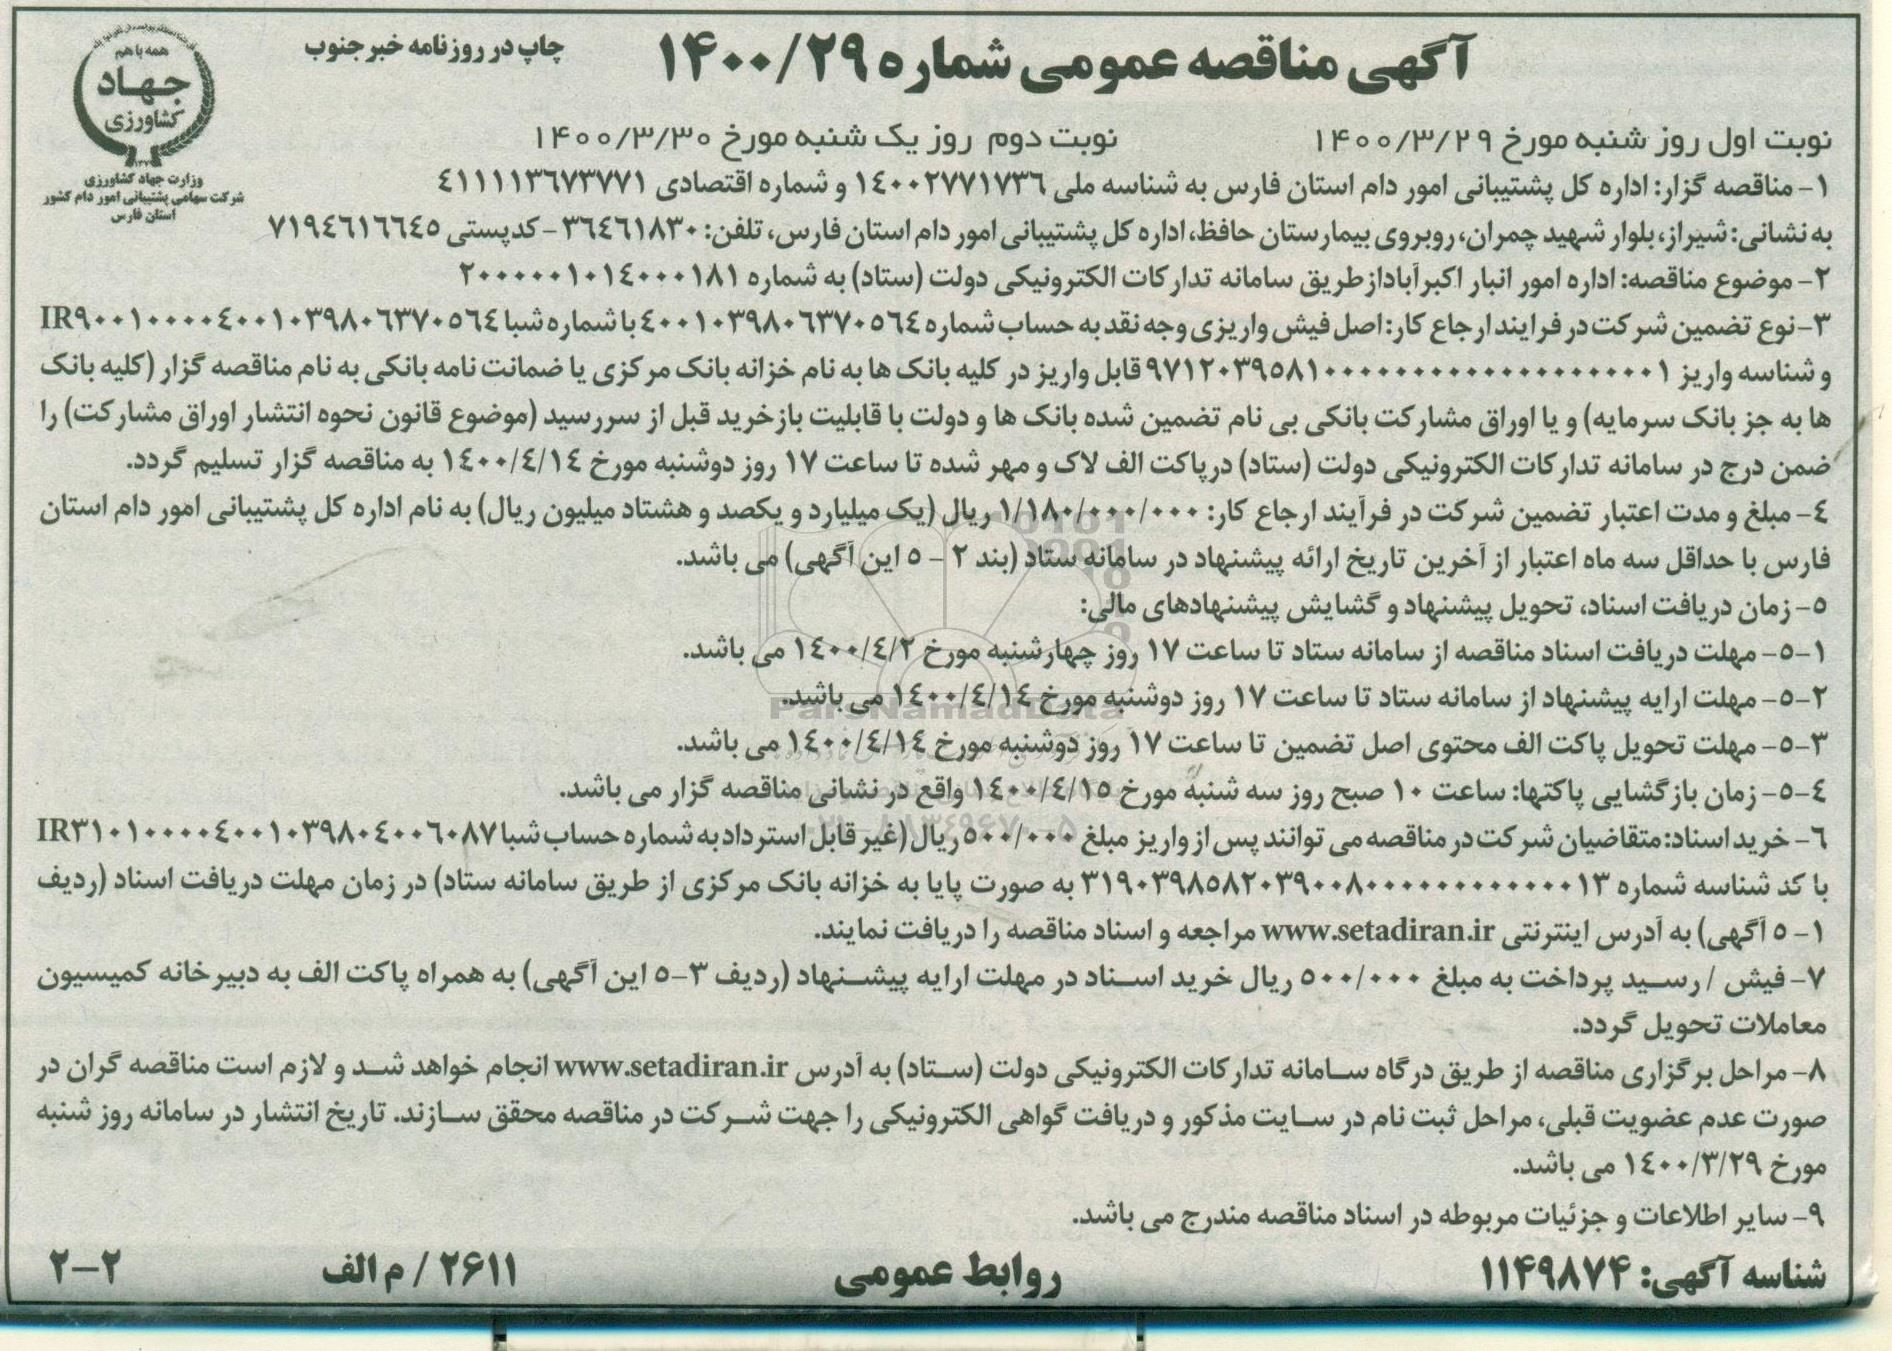 آگهی مناقصه عمومی شماره ۱۴۰۰/۲۹
چاپ در روزنامه خبر جنوب
همه با هم
جهاد
کشاورزی
وزارت جهاد کشاورزی
شرکت سهامی پشتیبانی امور دام کشور
استان فارس
نوبت اول روز شنبه مورخ ۱۴۰۰/۳/۲۹
نوبت دوم روز یک شنبه مورخ ۱۴۰۰/۳/۳۰
۱- مناقصه گزار: اداره کل پشتیبانی امور دام استان فارس به شناسه ملی ۱۴۰۰۲۷۷۱۷۳۶ و شماره اقتصادی ۴۱۱۱۱۳۶۷۳۷۷۱
به نشانی: شیراز، بلوار شهید چمران، روبروی بیمارستان حافظ، اداره کل پشتیبانی امور دام استان فارس، تلفن: ۳۶۴۶۱۸۳۰ - کدپستی ۷۱۹۴۶۱۶۶۴۵
۲- موضوع مناقصه: اداره امور انبار اکبرآباد از طریق سامانه تدارکات الکترونیکی دولت (ستاد) به شماره ۲۰۰۰۰۰۱۰۱۴۰۰۰۱۸۱
۳- نوع تضمین شرکت در فرایند ارجاع کار: اصل فیش واریزی وجه نقد به حساب شماره ۴۰۰۱۰۳۹۸۰۶۳۷۰۵۶۴ با شماره شبا IR۹۰۰۱۰۰۰۰۴۰۰۱۰۳۹۸۰۶۳۷۰۵۶۴
و شناسه واریز ۹۷۱۲۰۳۹۵۸۱۰۰۰۰۰۰۰۰۰۰۰۰۰۰۰۰۰۰۱ قابل واریز در کلیه بانک ها به نام خزانه بانک مرکزی یا ضمانت نامه بانکی به نام مناقصه گزار (کلیه بانک
ها به جز بانک سرمایه) و یا اوراق مشارکت بانکی بی نام تضمین شده بانک ها و دولت با قابلیت بازخرید قبل از سررسید (موضوع قانون نحوه انتشار اوراق مشارکت) را
ضمن درج در سامانه تدارکات الکترونیکی دولت (ستاد) در پاکت الف لاک و مهر شده تا ساعت ۱۷ روز دوشنبه مورخ ۱۴۰۰/۴/۱۴ به مناقصه گزار تسلیم گردد.
۴- مبلغ و مدت اعتبار تضمین شرکت در فرآیند ارجاع کار: ۱/۱۸۰/۰۰۰/۰۰۰ ریال (یک میلیارد و یکصد و هشتاد میلیون ریال) به نام اداره کل پشتیبانی امور دام استان
فارس با حداقل سه ماه اعتبار از آخرین تاریخ ارائه پیشنهاد در سامانه ستاد (بند ۲ - ۵ این آگهی) می باشد.
۵- زمان دریافت اسناد، تحویل پیشنهاد و گشایش پیشنهادهای مالی:
۵-۱- مهلت دریافت اسناد مناقصه از سامانه ستاد تا ساعت ۱۷ روز چهارشنبه مورخ ۱۴۰۰/۴/۲ می باشد.
۵-۲- مهلت ارایه پیشنهاد از سامانه ستاد تا ساعت ۱۷ روز دوشنبه مورخ ۱۴۰۰/۴/۱۴ می باشد.
ParsNamadData
۵-۳- مهلت تحویل پاکت الف محتوی اصل تضمین تا ساعت ۱۷ روز دوشنبه مورخ ۱۴۰۰/۴/۱۴ می باشد.
۵-۴- زمان بازگشایی پاکتها: ساعت ۱۰ صبح روز سه شنبه مورخ ۱۴۰۰/۴/۱۵ واقع در نشانی مناقصه گزار می باشد.
۶- خرید اسناد: متقاضیان شرکت در مناقصه می توانند پس از واریز مبلغ ۵۰۰/۰۰۰ ریال (غیر قابل استرداد به شماره حساب شبا IR۳۱۰۱۰۰۰۰۴۰۰۱۰۳۹۸۰۴۰۰۶۰۸۷
با کد شناسه شماره ۳۱۹۰۳۹۸۵۸۲۰۳۹۰۰۸۰۰۰۰۰۰۰۰۰۰۰۰۱۳ به صورت پایا به خزانه بانک مرکزی از طریق سامانه ستاد) در زمان مهلت دریافت اسناد (ردیف
۱- ۵ آگهی) به آدرس اینترنتی www.setadiran.ir مراجعه و اسناد مناقصه را دریافت نمایند.
۷- فیش / رسید پرداخت به مبلغ ۵۰۰/۰۰۰ ریال خرید اسناد در مهلت ارایه پیشنهاد (ردیف ۳-۵ این آگهی) به همراه پاکت الف به دبیرخانه کمیسیون
معاملات تحویل گردد.
۸- مراحل برگزاری مناقصه از طریق درگاه سامانه تدارکات الکترونیکی دولت (ستاد) به آدرس www.setadiran.ir انجام خواهد شد و لازم است مناقصه گران در
صورت عدم عضویت قبلی، مراحل ثبت نام در سایت مذکور و دریافت گواهی الکترونیکی را جهت شرکت در مناقصه محقق سازند. تاریخ انتشار در سامانه روز شنبه
مورخ ۱۴۰۰/۳/۲۹ می باشد.
۹- سایر اطلاعات و جزئیات مربوطه در اسناد مناقصه مندرج می باشد.
شناسه آگهی: ۱۱۴۹۸۷۴
روابط عمومی
۲۶۱۱ / م الف
۲-۲